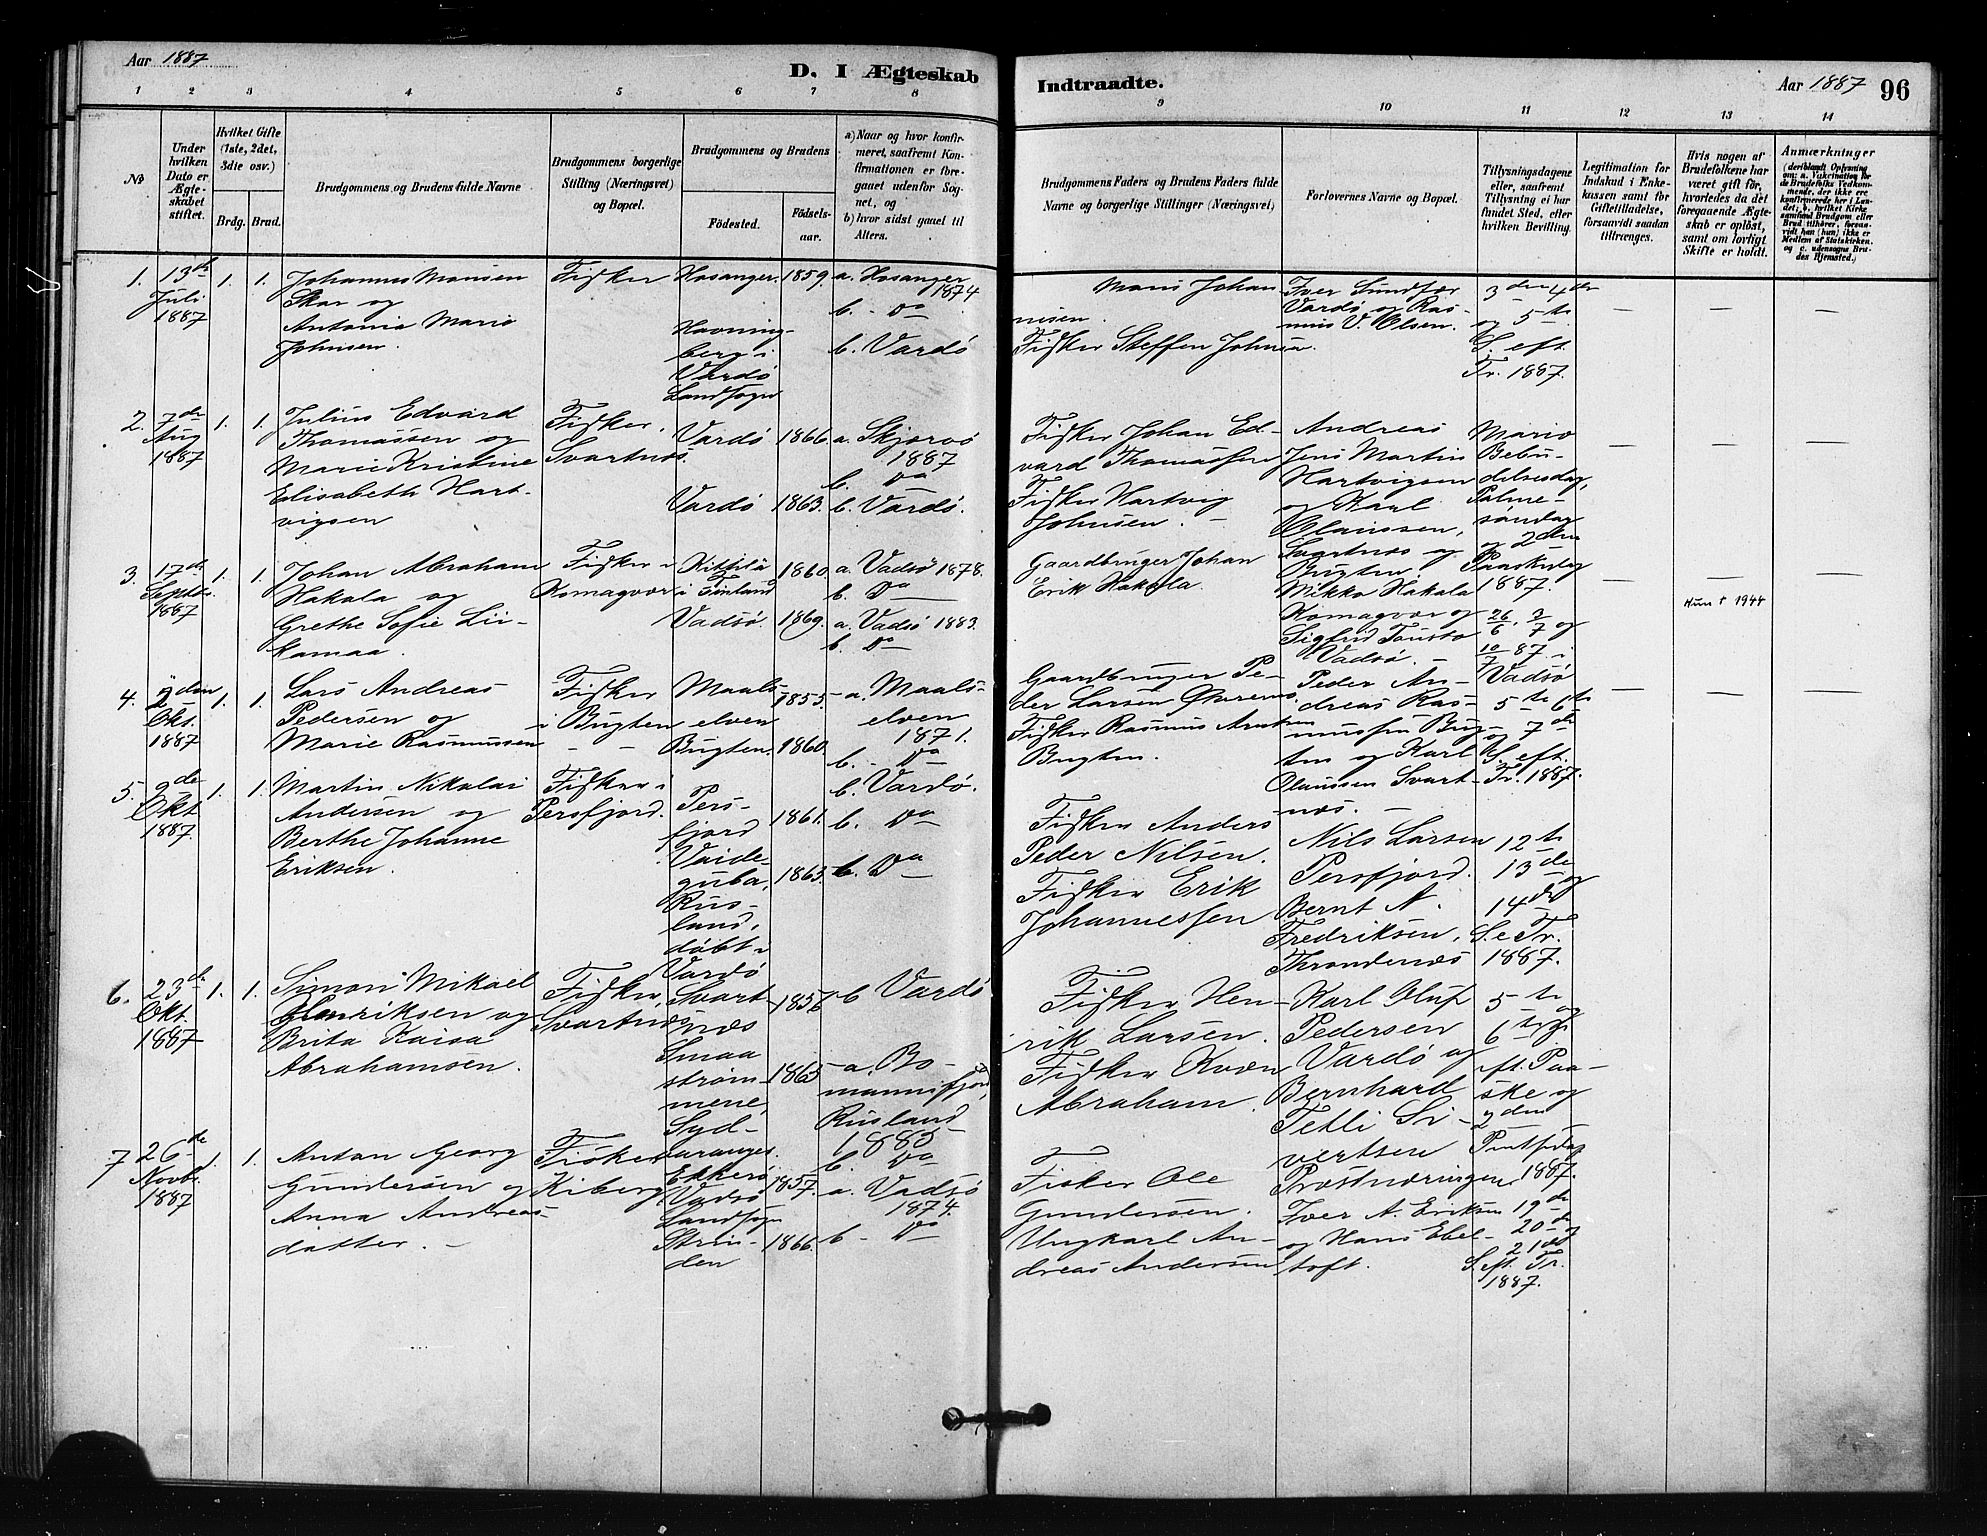 Aar 1887
D. I Ægteskab
Indtraadte.
Aar 1887 96
1 2 3 4 5 6 7 8
9 10 11 12 13 14
No
Under hvilken Dato er Ægteskabet stiftet.
Hvilket Gifte (1ste, 2det, 3die osv.)
Brdg. Brud.
Brudgommens og Brudens fulde Navne
Brudgommens borgerlige Stilling (Næringsvei) og Bopæl.
Brudgommens og Brudens
Fødested.
Fødselsaar.
a) Naar og hvor konfirmeret, saafremt Konfirmationen er foregaaet udenfor Sognet, og
b) hvor sidst gaaet til Alters.
Brudgommens Faders og Brudens Faders fulde Navne og borgerlige Stillinger (Næringsvei)
Forlovernes Navne og Bopæl.
Tillysningsdagene eller, saafremt Tillysning ei har fundet Sted, efter hvilken Bevilling.
Legitimation for Indskud i Enkekassen samt for Giftetilladelse, forsaavidt saadan tiltrænges.
Hvis nogen af Brudefolkene har været gift før, hvorledes da det foregaaende Ægteskab er opløst, samt om lovligt Skifte er holdt.
Anmærkninger
1. 13de Juli 1887 1. 1.
Johannes Monsen
Skar og
Antonia Marie
Johnsen.
Fisker
Hosanger. 1859.
Havning-
berg i
Vardö
Landsogn
a. Hosanger
1874
b. - Do
b. Vardö
Mons Johan
nesen.
Fisker Steffen Johnsen.
Iver Sundfær
Vardö og Ras-
mus V. Olsen.
3den 4de
og 5te
S. eft.
Tr. 1887.
— — —
2. 7de Aug 1887 1. 1.
Julius Edvard
Thomassen og
Marie Kristine
Elisabeth Hart-
vigsen
Fisker,
Svartnes.
Vardö 1866
Vardö 1863.
a. Skjervö
1887
b. Do
b. Vardö.
Fisker Johan Ed-
vard Thomassen
Fisker Hartvig
Johnsen. -
Andreas
Jens Martin
Hartvigsen
og Karl
Olaussen,
Svartnes og
Bugten.
Mariæ
Bebu-
delsesdag,
Palme-
søndag
og 2den
Paaskedag
1887.
— — —
3. 17de Septbr. 1887 1. 1.
Johan Abraham
Hakala og
Grethe Sofie Lii-
kamaa.
Fisker i
Komagvær
Kittilä
i Finland
1860.
Vadsö. 1869.
a. Vadsö 1878.
b. Do
a. Vadsö 1883.
b. Do
Gaardbruger Johan
Erik Hakala.
Mikko Hakala
Komagvær og
Sigfrid Tousta
Vadsö. -
26/6. 3/7 og
10/7 87. i
Vadsö
— — —
Hun † 1944
4. 2den Okt. 1887 1. 1.
Lars Andreas
Pedersen og
Marie Rasmussen
Fisker
i Bugten
Maals-
elven
1855.
Bugten. 1860
a. Maals-
elven
1871.
b. - Do
b. Vardö.
Gaardbruger Pe-
der Larsen Øveren
Fisker Rasmus Arntsen
Bugten.
Peder An-
dreas Ras-
mussen Bug-
ten og Karl
Olaussen Svart-
nes. -
5te 6te
og 7de
S. eft.
Tr. 1887.
— — —
5. 2de Okt 1887 1. 1.
Martin Nikolai
Andersen og
Berthe Johanne
Eriksen.
Fisker i
Persfjord.
Pers-
fjord
1861.
Vaide-
guba,
Rus-
land,
döbt i
Vardö
1863.
b. Do
b. Do
Fisker Anders
Peder Nilsen.
Fisker Erik
Johannessen
Nils Larsen
Persfjord.
Bernt A.
Fredriksen,
Throndenes
12te
13de og
14de
S. e Tr.
1887.
6. 23de Okt. 1887 1. 1.
Simon Mikael
Henriksen og
Brita Kaisa
Abrahamsen.
Fisker,
Svartnes
Svart-
næs
1856
Smaa
strøm-
mene,
Syd-
varanger.
1865
b Vardö
a. Bo-
mannsfjord,
Rusland
1883
b. Do
Fisker Hen-
rik Larsen.
Fisker Kvæn
Abraham.
Karl Oluf
Pedersen
Vardö og
Bernhard
Tetli Si-
vertsen
Præstnæringen
5te og
6te S.
eft. Paa-
ske og
2den
Pintsedag
1887.
7 26de Novbr. 1887 1. 1.
Antan Georg
Gundersen og
Anna Andreas-
datter. -
Fisker
Kiberg
Ekkerö
Vadsö
Landsogn
1857.
Strin-
den
1866.
a. Vadsö
1874.
b - Do
Fisker Ole
Gundersen.
Ungkarl An-
dreas Andersen
Iver A. Eriksen
og Hans Ebel-
toft.
19de
20de og
21de
S. eft. Tr.
1887.